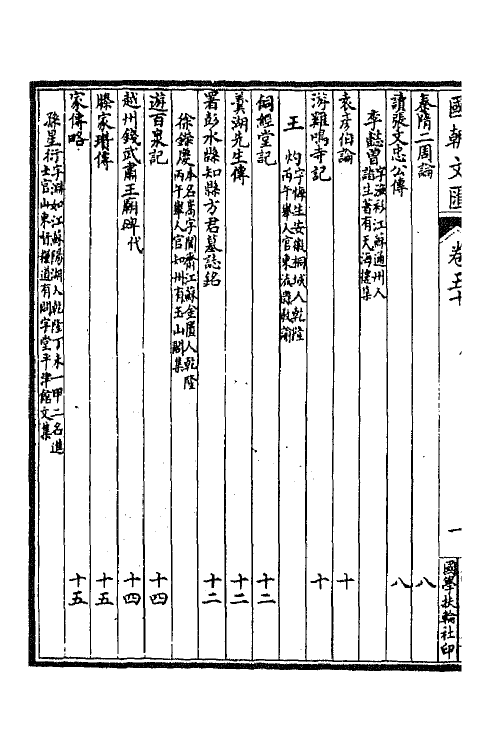 國朝文匯 卷五十 一 國學扶輪社印
秦隋二周論 八
讀張文忠公傳 八
李懿曾 字漁衫江蘇通州人
諸生著有天海樓集
袁彥伯論 十
游雞鳴寺記 十
王灼 字悔生安徽桐城人乾隆
丙午舉人官東流縣教諭
祠經堂記 十二
羹湖先生傳 十二
署彭水縣知縣方君墓誌銘 十二
徐鑅慶 本名嵩字閬齋江蘇金匱人乾隆
丙午舉人官知州有玉山閣集
遊百泉記 十四
越州錢武肅王廟碑代 十四
滕家瑃傳 十五
家傳略 十五
孫星衍 字淵如江蘇陽湖人乾隆丁未一甲二名進
士官山東督糧道有問字堂平津館文集